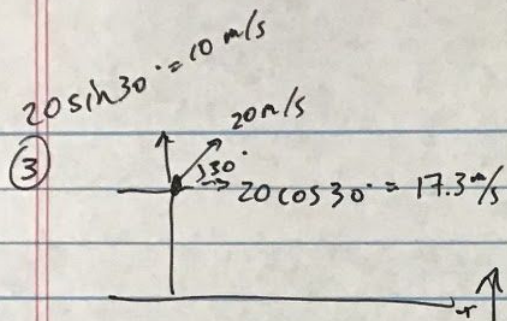 20 sin 30° = 10 m/s
③
20 m/s
30°
20 cos 30° = 17.3 m/s